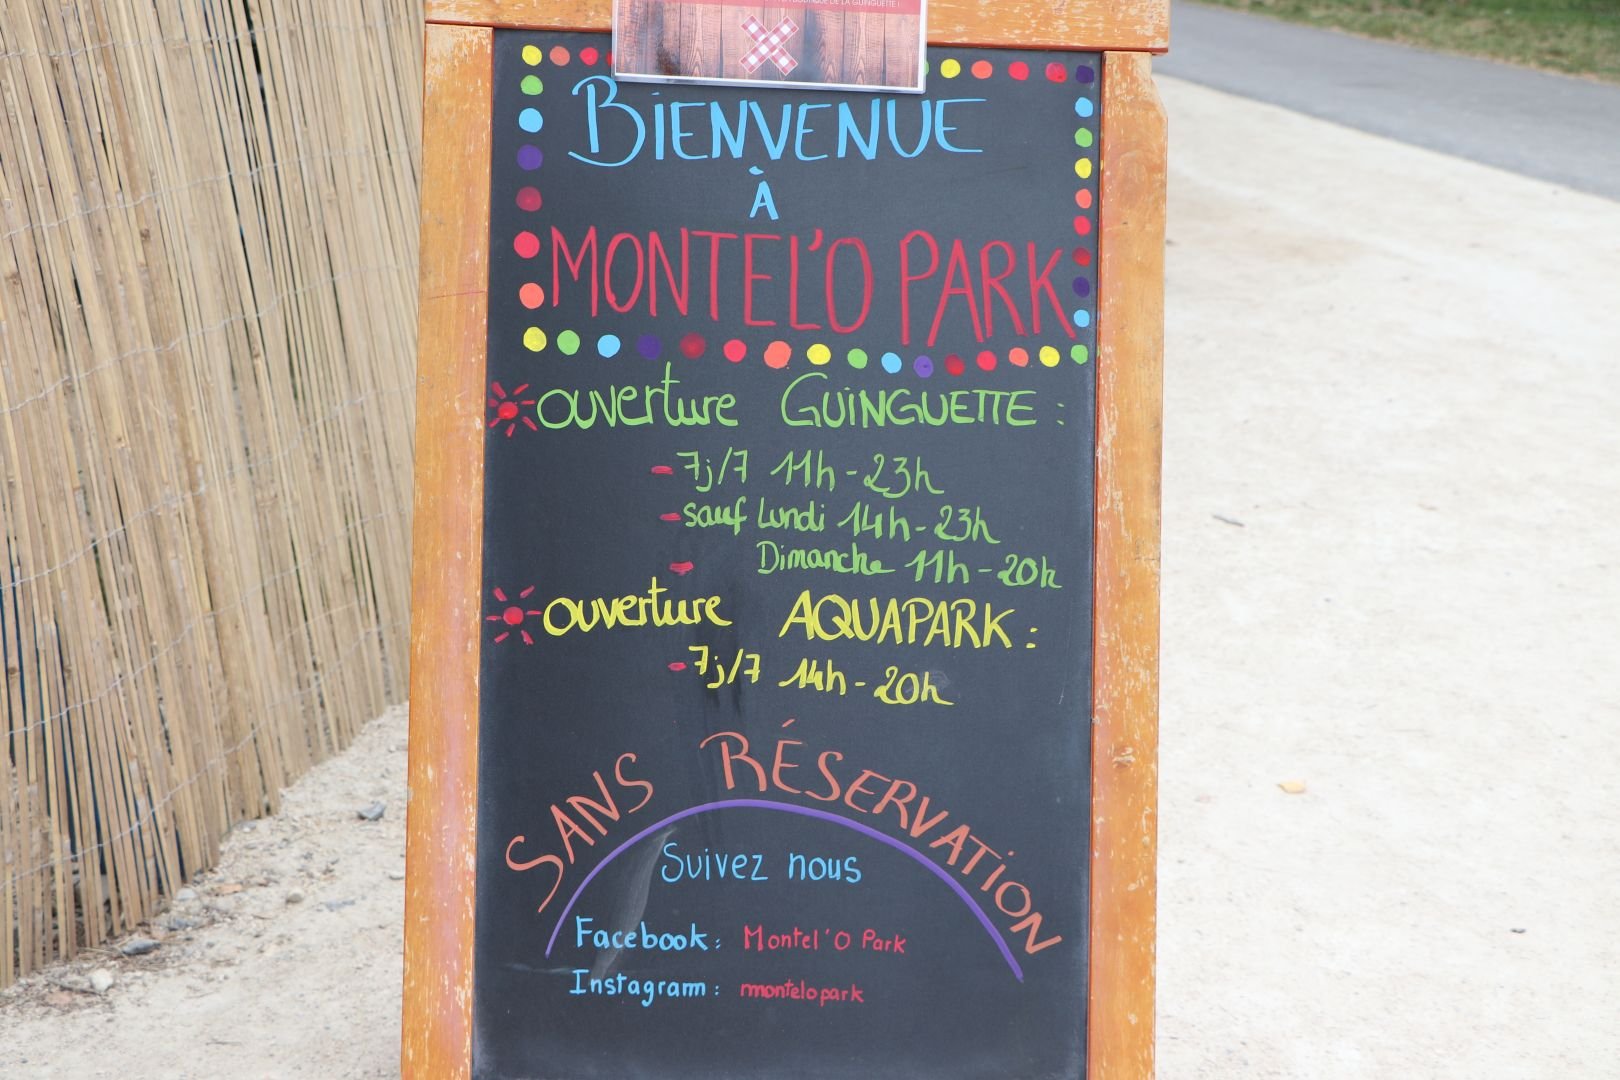 BOUTIQUE DE LA GUINGUETTE !
BIENVENUE
À
MONTEL'O PARK
ouverture GUINGUETTE :
- 7j/7 11h - 23h
- sauf Lundi 14h - 23h
- Dimanche 11h - 20h
ouverture AQUAPARK :
- 7j/7 14h - 20h
SANS RÉSERVATION
Suivez nous
Facebook : Montel'O Park
Instagram : montelopark